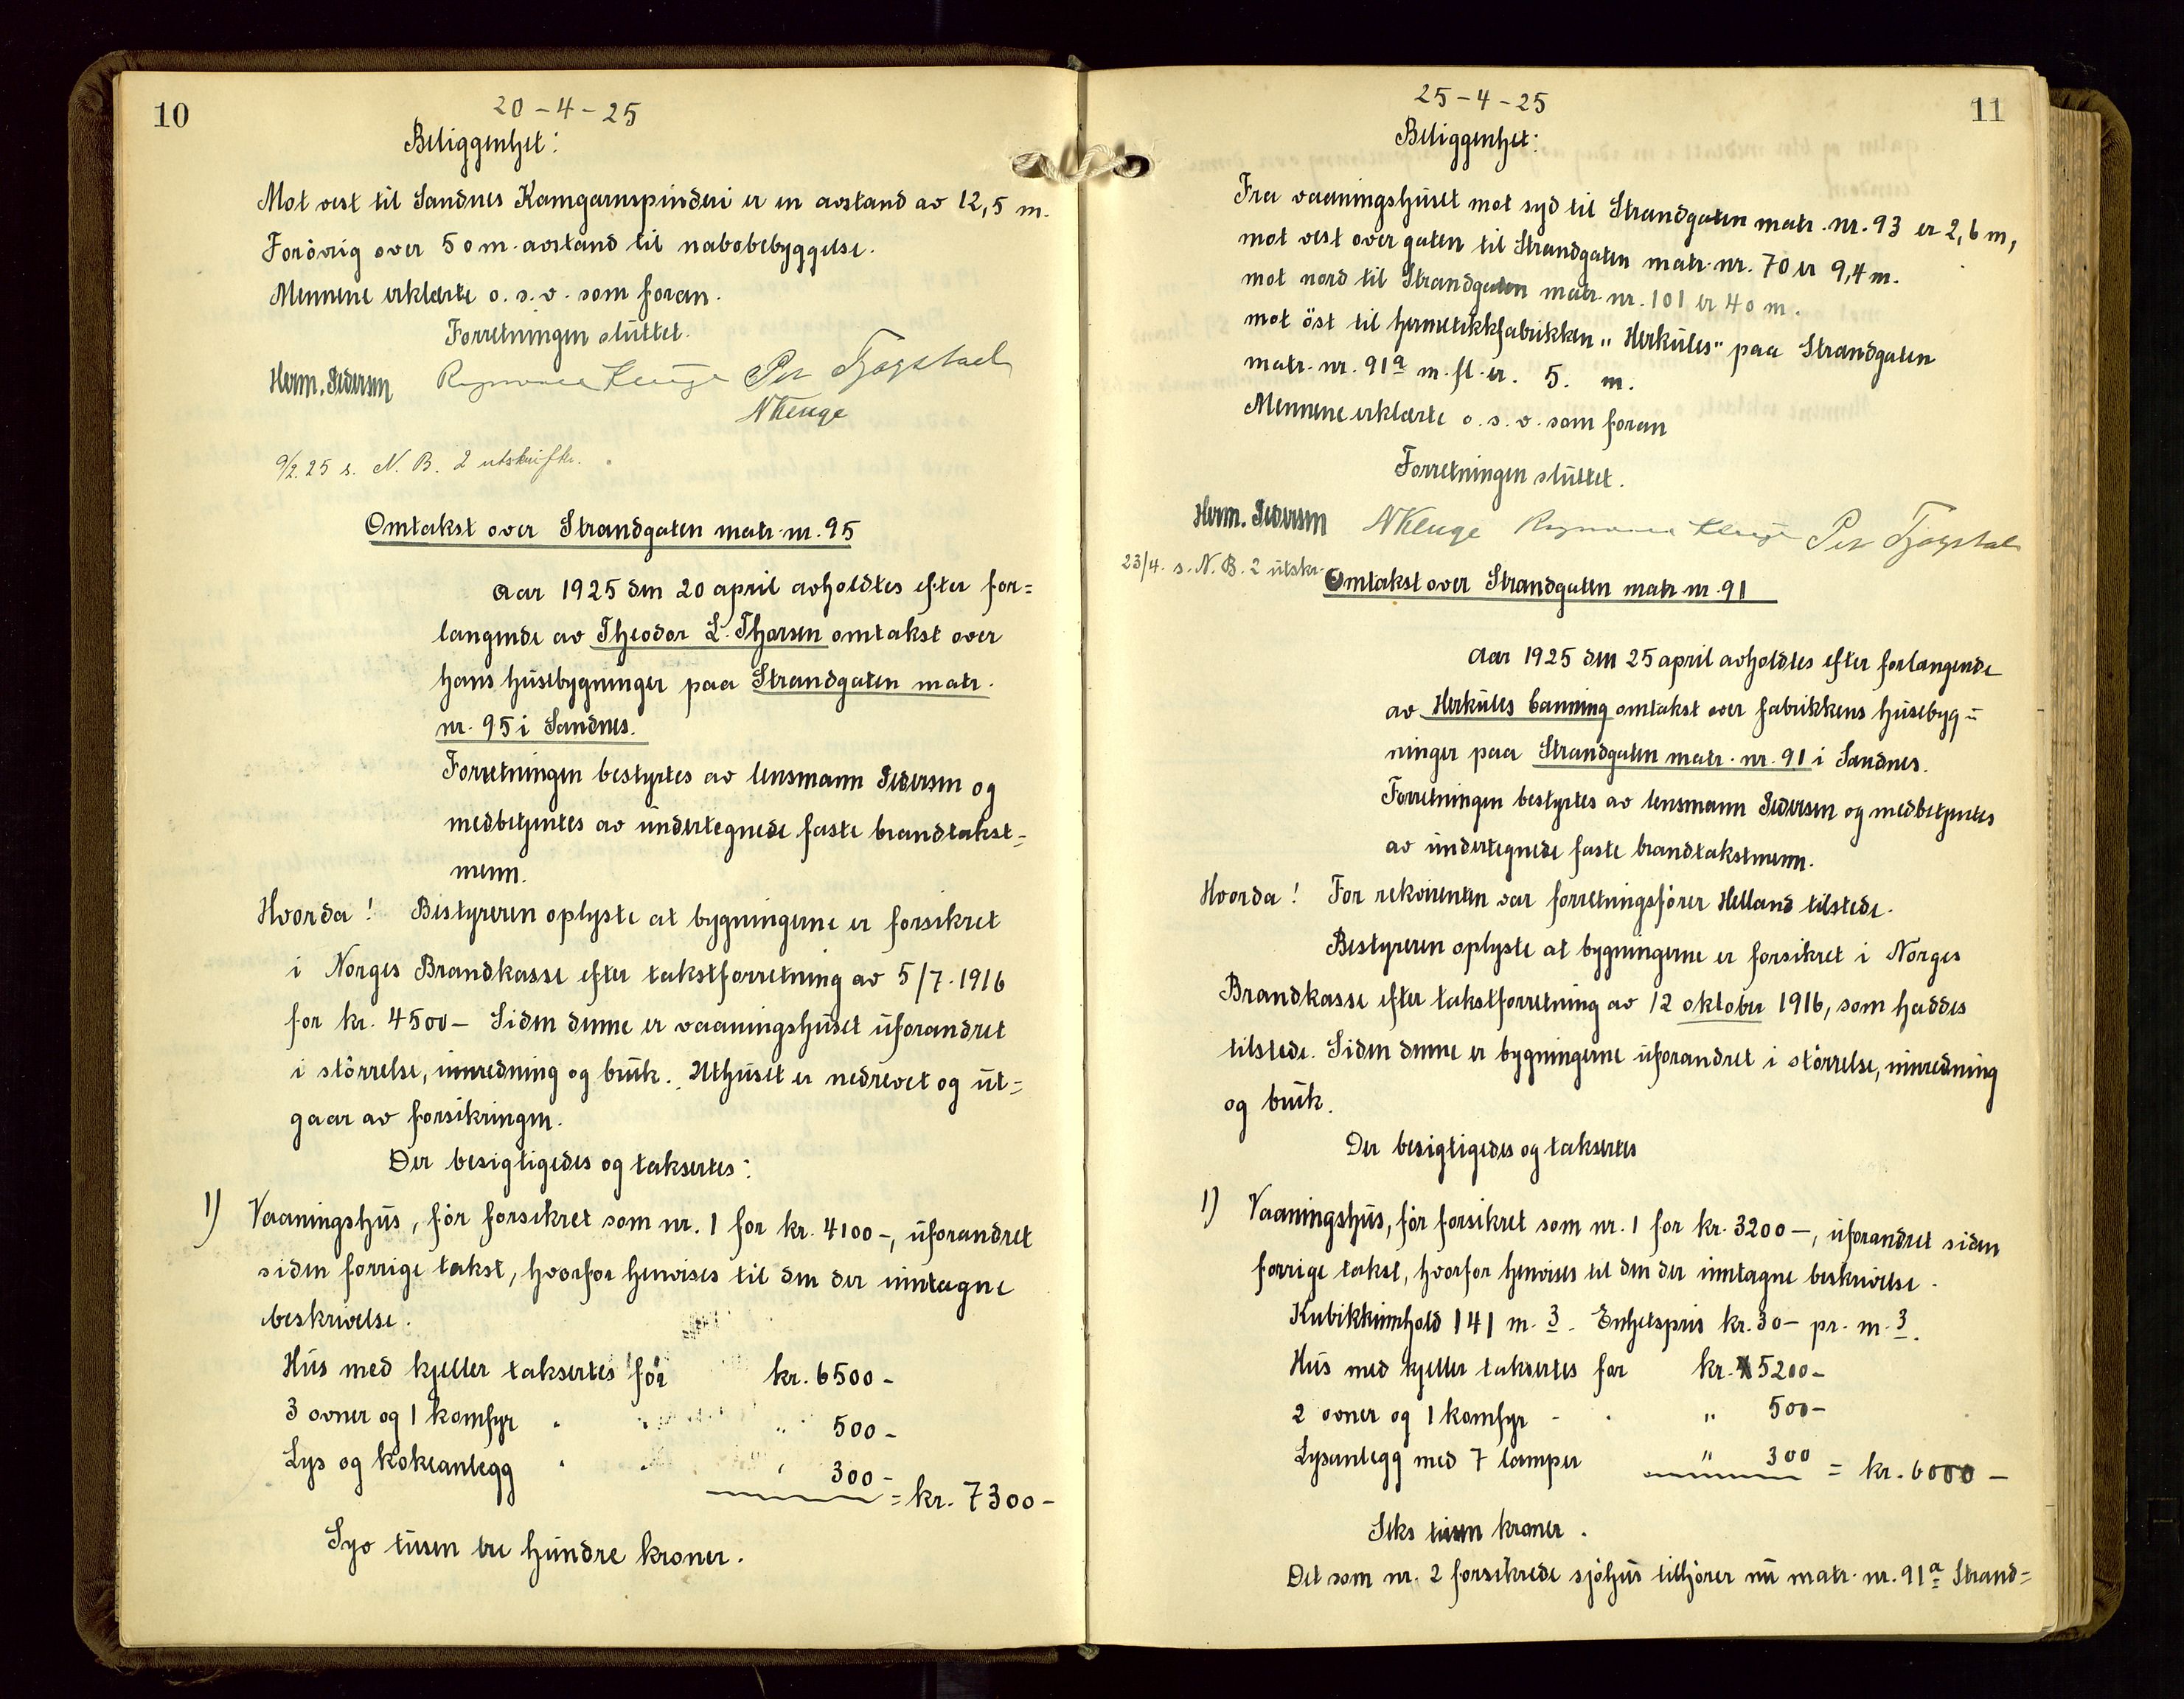 10
20-4-25
Beliggenhet:
Mot vest til Sandnes Kamgarnspinderi er en avstand av 12,5 m.
Forövrig over 50 m. avstand til nabobebyggelse.
Mennene erklærte o. s. v. som foran.
Forretningen sluttet.
Herm. Pedersen Rasmus Kluge Per Tjøgstad
N Kluge
9/2.25 s. N. B. 2 utskrifter.
Omtakst over Strandgaten matr. nr. 95
Aar 1925 den 20 april avholdtes efter for=
langende av Theodor L. Thorsen omtakst over
hans husebygninger paa Strandgaten matr.
nr. 95 i Sandnes.
Forretningen bestyrtes av lensmann Pedersen og
medbetjentes av undertegnede faste brandtakst=
menn.
Hvorda! Bestyreren oplyste at bygningerne er forsikret
i Norges Brandkasse efter takstforretning av 5/7. 1916
for kr. 4500- Siden denne er vaaningshuset uforandret
i störrelse, innredning og bruk. Uthuset er nedrevet og ut=
gaar av forsikringen.
Der besigtigedes og taksertes:
1) Vaaningshus, för forsikret som nr. 1 for kr. 4100-, uforandret
siden forrige takst, hvorfor henvises til den der inntagne
beskrivelse.
Hus med kjeller taksertes for kr. 6500-
3 ovner og 1 komfyr " " " 500-
Lys og kokeanlegg " " " 300-
= kr. 7300-
Syv tusen tre hundre kroner.
11
25-4-25
Beliggenhet:
Fra vaaningshuset mot syd til Strandgaten matr. nr. 93 er 2,6 m,
mot vest over gaten til Strandgaten matr. nr. 70 er 9,4 m.
mot nord til Strandgaten matr. nr. 101 er 40 m.
mot öst til hermetikkfabrikken "Herkules" paa Strandgaten
matr. nr. 91a m. fl. er. 5. m.
Mennene erklærte o. s. v. som foran
Forretningen sluttet.
Herm. Pedersen N Kluge Rasmus Kluge Per Tjøgstad
23/4. s. N. B. 2 utskr.
Omtakst over Strandgaten matr. nr. 91
Aar 1925 den 25 april avholdtes efter forlangende
av Herkules Canning omtakst over fabrikkens husebyg=
ninger paa Strandgaten matr. nr. 91 i Sandnes.
Forretningen bestyrtes av lensmann Pedersen og medbetjentes
av undertegnede faste brandtakstmenn.
Hvorda! For rekvirenten var forretningsförer Helland tilstede.
Bestyreren oplyste at bygningerne er forsikret i Norges
Brandkasse efter takstforretning av 12 oktober 1916, som haddes
tilstede. Siden denne er bygningerne uforandret i störrelse, innredning
og bruk.
Der besigtigedes og taksertes
1) Vaaningshus, för forsikret som nr. 1 for kr. 3200-, uforandret siden
forrige takst, hvorfor henvises til den der inntagne beskrivelse.
Kubikkinnhold 141 m. 3. Enhetspris kr. 30- pr. m. 3.
Hus med kjeller taksertes for kr. 5200-
2 ovner og 1 komfyr - " " 500-
Lysanlegg med 7 lamper " 300 = kr. 6000-
Seks tusen kroner.
Det som nr. 2 forsikrede sjöhus tilhörer nu matr. nr. 91a Strand=